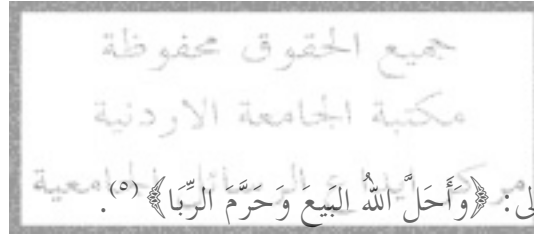 جميع الحقوق محفوظة
مكتبة الجامعة الاردنية
مركز ايداع الرسائل الجامعية
لى: ﴿وَأَحَلَّ اللهُ البَيعَ وَحَرَّمَ الرِّبَا﴾ (٥).